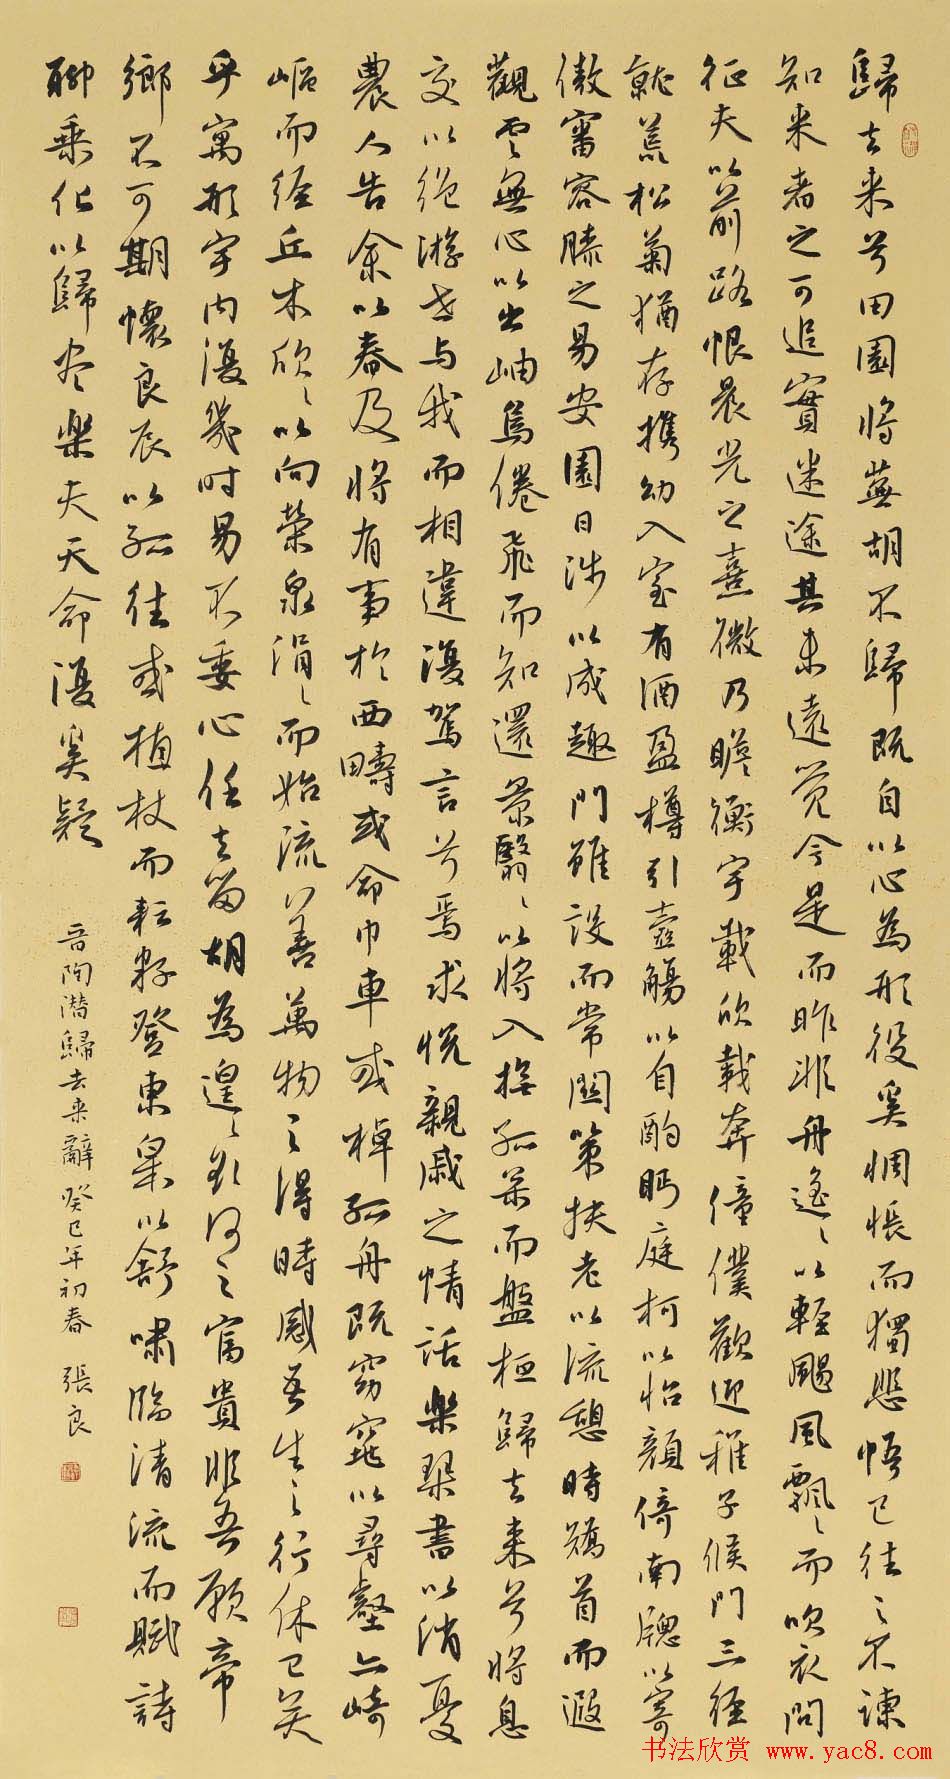 歸去来兮田園将蕪胡不歸既自以心為形役奚惆悵而獨悲悟已往之不諫
知来者之可追實迷途其未遠覚今是而昨非舟遙々以輕颺風飄々而吹衣問
征夫以前路恨晨光之熹微乃瞻衡宇載欣載奔僮僕歡迎稚子候門三徑
就荒松菊猶存携幼入室有酒盈樽引壺觴以自酌眄庭柯以怡顏倚南牕以寄
傲審容膝之易安園日涉以成趣門雖設而常關策扶老以流憩時矯首而遐
觀雲無心以出岫鳥倦飛而知還景翳々以将入撫孤松而盤桓歸去来兮将息
交以绝游世与我而相違復駕言兮焉求悦親戚之情話樂琴書以消憂
農人告余以春及将有事於西疇或命巾車或棹孤舟既窈窕以尋壑亦崎
嶇而經丘木欣々以向榮泉涓々而始流善萬物之得時感吾生之行休已矣
乎寓形宇内復幾时曷不委心任去留胡為遑々欲何之富貴非吾願帝
鄉不可期懷良辰以孤往或植杖而耘耔登東皋以舒嘯臨清流而賦詩
聊乘化以歸盡樂夫天命復奚疑
晋陶潜歸去来辭癸巳年初春 張良
书法欣赏 www.yac8.com